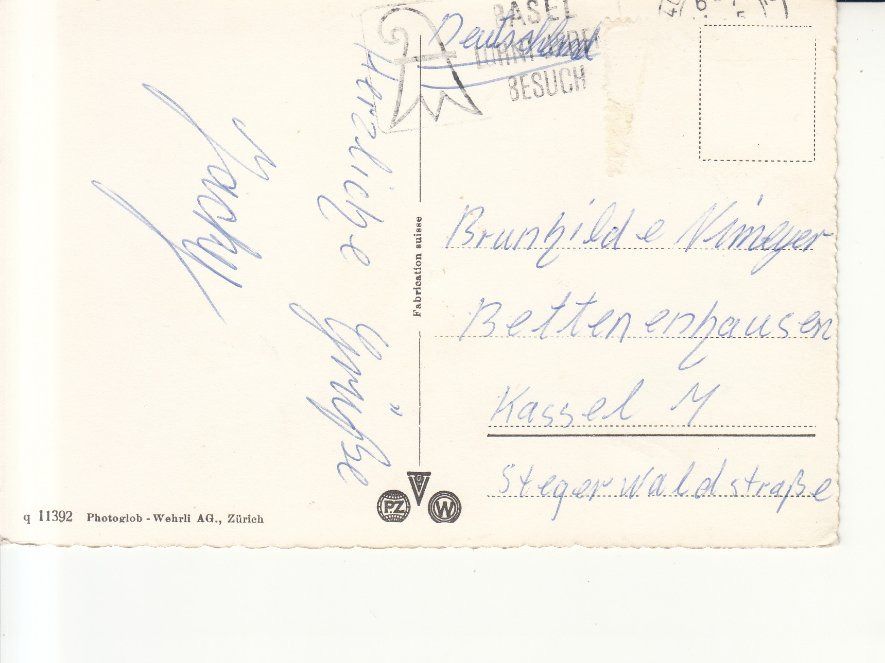 BASEL
Deutschland
BESUCH
Herzliche Grüße
Fabrication suisse
Brunhilde Nimeyer
Bettenenhausen
Kassel
Stegerwaldstraße
PZ W
q 11392 Photoglob - Wehrli AG., Zürich